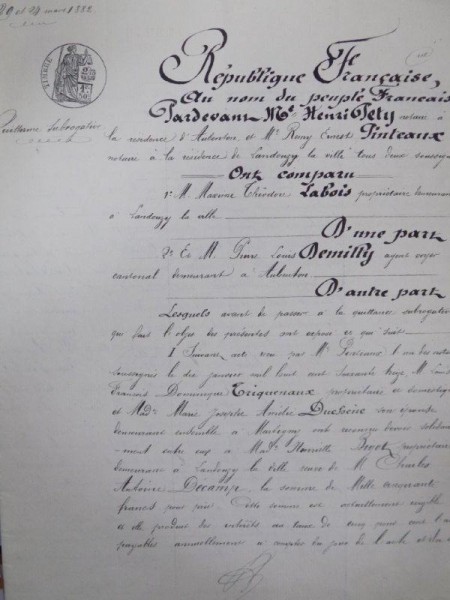 29 et 29 mars 1882
TIMBRE
Quittance Subrogative
République Française,
Au nom du peuple Français
Pardevant Me Henri Pety notaire à
la résidence d'Aubenton et Me Remy Ernest Pinteaux
notaire à la résidence de Landouzy la ville tous deux soussignés
Ont comparu
1° M. Maxime Théodore Labois propriétaire demeurant
à Landouzy la ville
D'une part
2° Et M. Pierre Louis Demilly agent voyer
cantonal demeurant à Aubenton
D'autre part
Lesquels avant de passer à la quittance subrogative
qui fait l'objet des présentes ont exposé ce qui suit
I Suivant acte reçu par Me Pinteaux l'un des notaires
soussignés le dix janvier mil huit cent soixante treize M. Louis
François Dominique Triquenaux propriétaire et domestique
et Made Marie Josèphe Amélie Duchêne son épouse
demeurant ensemble à Martigny ont reconnu devoir solidairement
entre eux à Made Henriette Brost propriétaire
demeurant à Landouzy la ville veuve de M. Charles
Antoine Decamp, la somme de Mille cinquante
francs pour prêt. Cette somme est actuellement exigible
et elle produit des intérêts au taux de cinq pour cent l'an
payables annuellement à compter du jour de l'acte